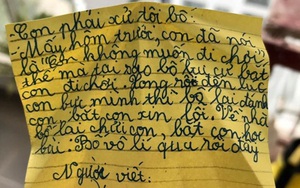 Con phải xử tội bố:
Mấy hôm trước, con đã nói
là "Con không muốn đi chơi"
thế mà tại sao bố cứ bắt
con đi chơi, xong rồi đến lúc
con bực mình thì bố lại đánh
con, bắt con xin lỗi. Về nhà
bố lại chửi con, bắt con học
bài. Bố vô lí quá rồi đấy
Người viết: